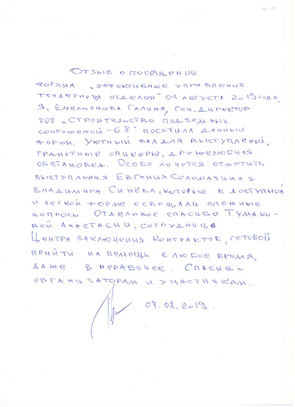 Отзыв о посещении
форума „Эффективное управление
тендерным отделом" 01 августа 2019 года.
Я, Емельянова Галина, ген. директор
ООО „Строительство подземных
сооружений-68" посетила данный
форум. Уютный зал для выступлений,
грамотные спикеры, дружелюбная
обстановка. Особо хочется отметить
выступления Евгения Соломатина и
Владимира Синёва, которые в доступной
и легкой форме освещали сложные
вопросы. Отдельное спасибо Тумако-
вой Анастасии, сотруднице
Центра заключения контрактов, готовой
прийти на помощь в любое время,
даже в нерабочее. Спасибо
организаторам и участникам.
07.08.2019.